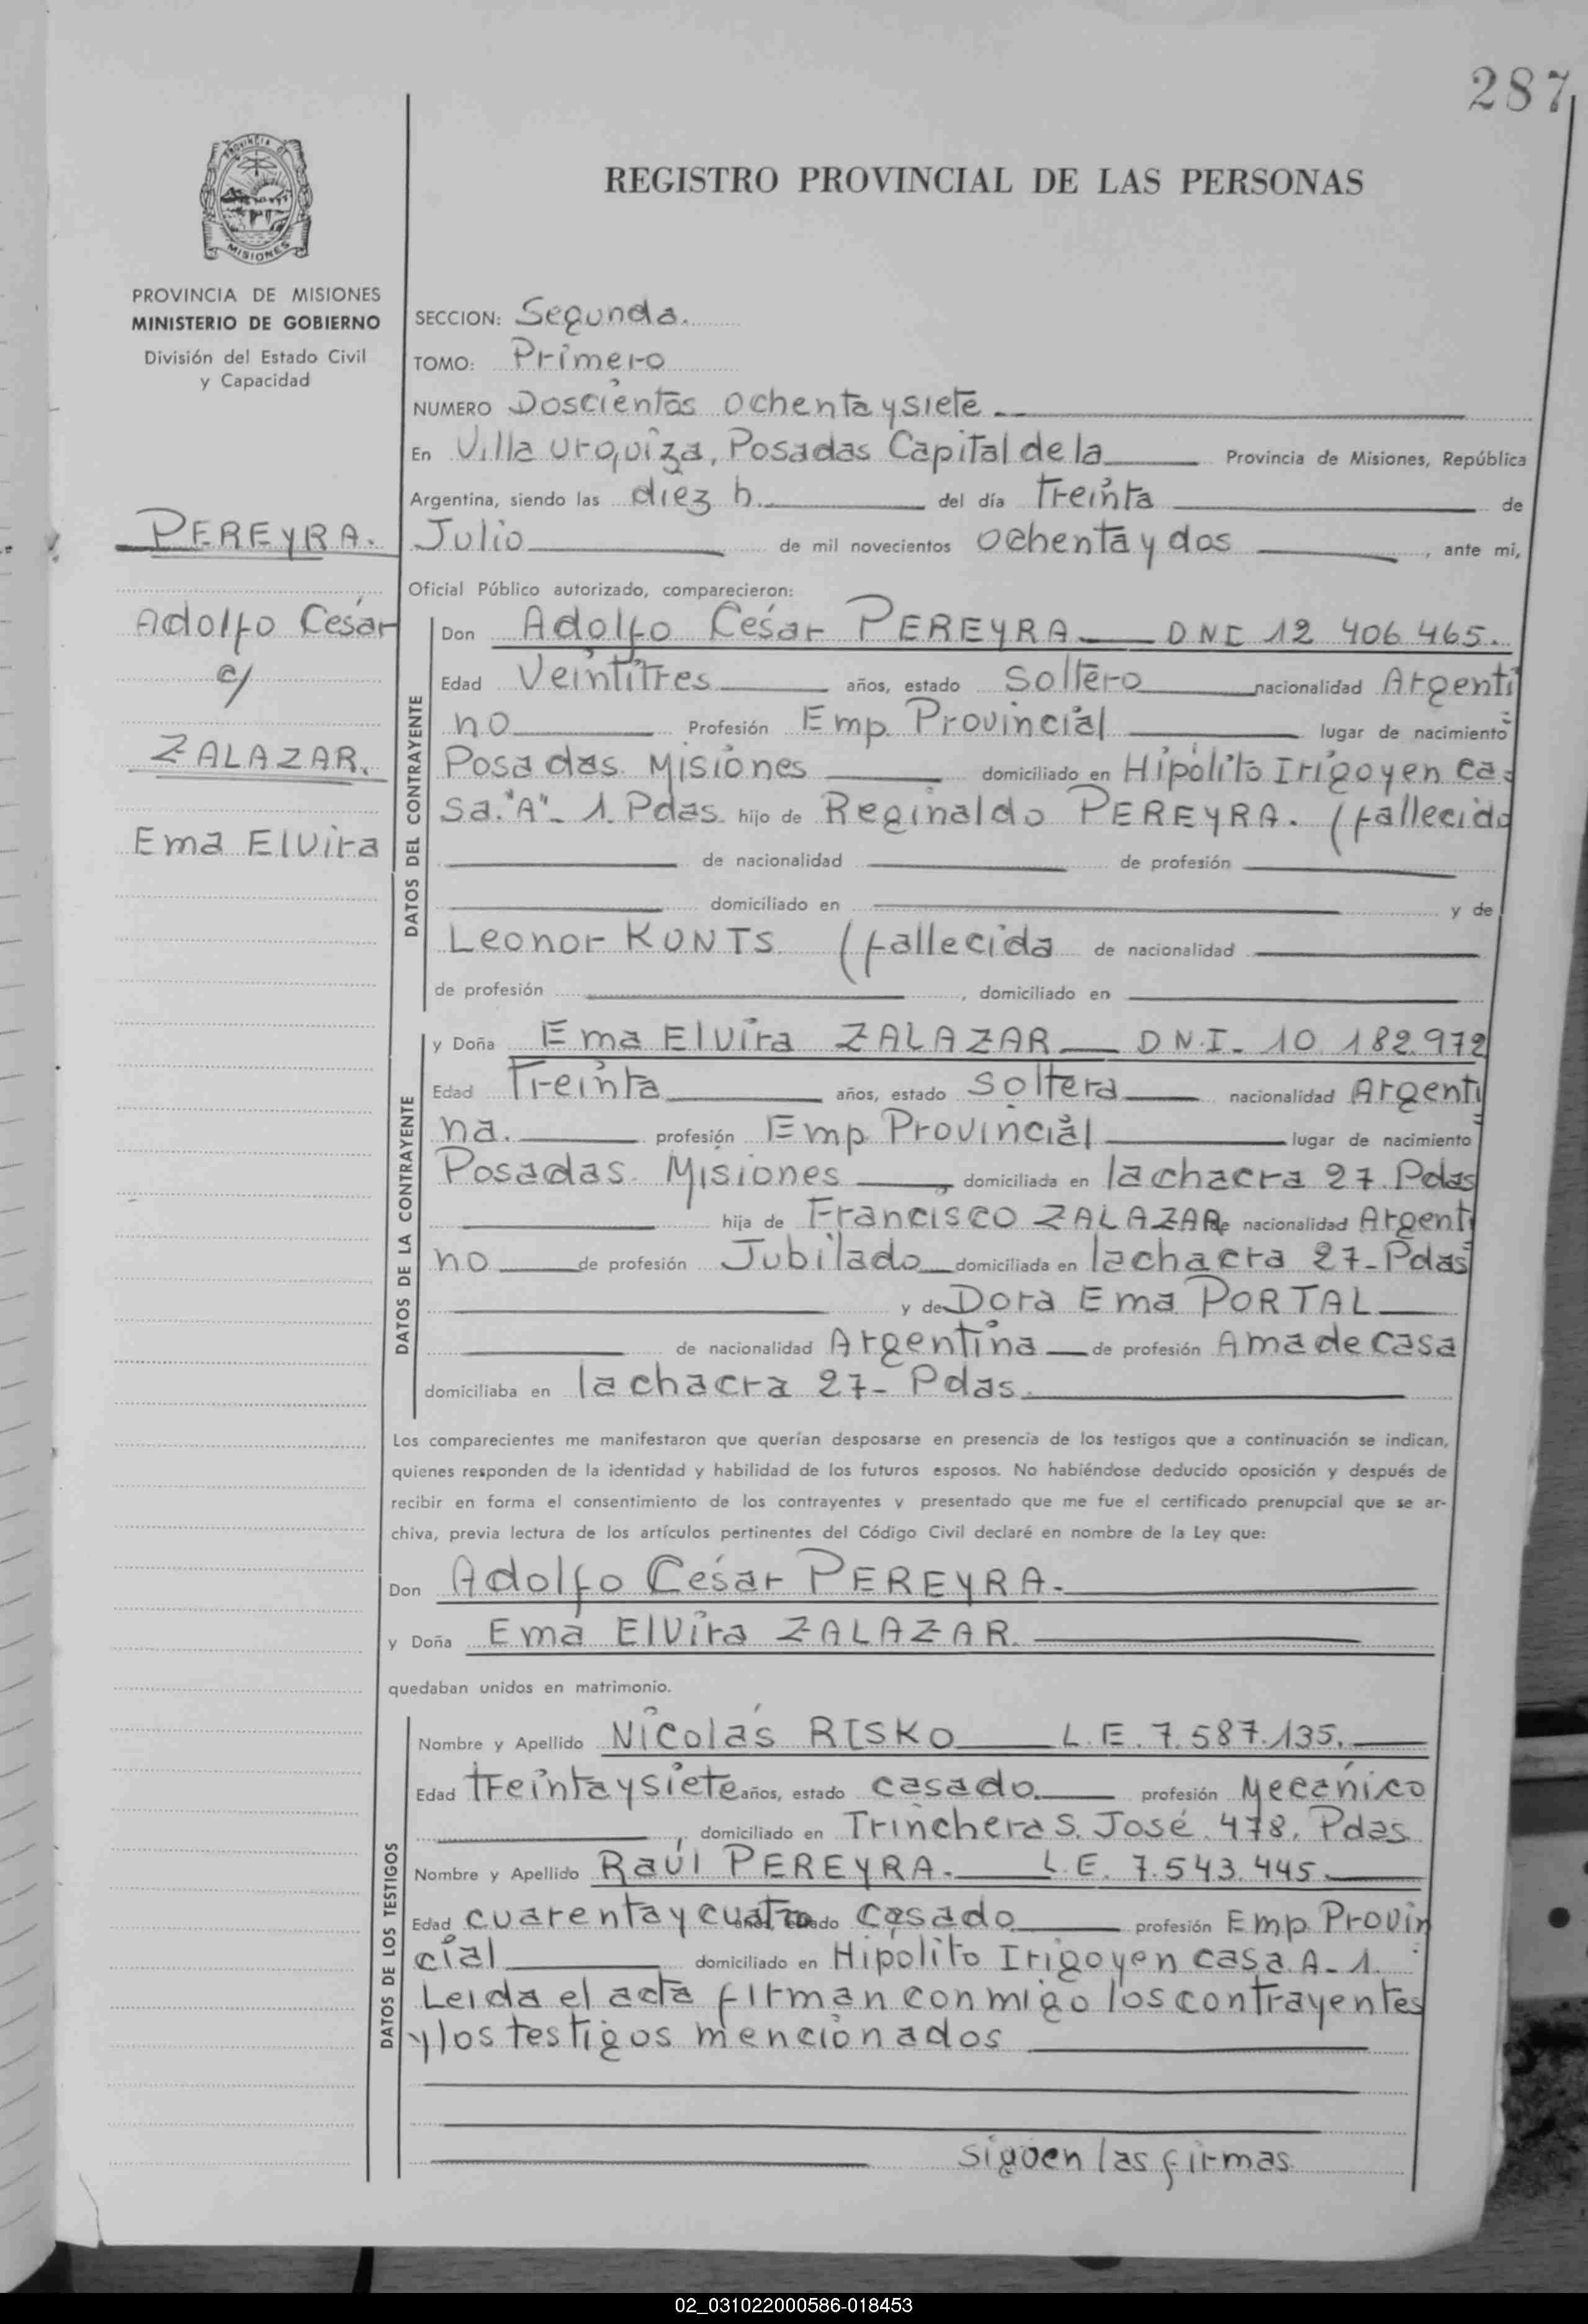 287
PROVINCIA DE
MISIONES
PROVINCIA DE MISIONES
MINISTERIO DE GOBIERNO
División del Estado Civil
y Capacidad
PEREYRA.
Adolfo César
c/
ZALAZAR.
Ema Elvira
REGISTRO PROVINCIAL DE LAS PERSONAS
SECCION: Segunda.
TOMO: Primero
NUMERO Doscientos ochenta y siete
En Villa Urquiza, Posadas Capital de la Provincia de Misiones, República
Argentina, siendo las diez h. del día Treinta de
Julio de mil novecientos ochenta y dos, ante mi,
Oficial Público autorizado, comparecieron:
DATOS DEL CONTRAYENTE
Don Adolfo César PEREYRA DNI 12 406 465.
Edad Veintitres años, estado soltero nacionalidad Argenti
no Profesión Emp Provincial lugar de nacimiento
Posadas Misiones domiciliado en Hipólito Irigoyen ca=
sa."A"- 1. Pdas. hijo de Reginaldo PEREYRA. (fallecido
de nacionalidad de profesión
domiciliado en y de
Leonor KUNTS (fallecida de nacionalidad
de profesión , domiciliado en
DATOS DE LA CONTRAYENTE
y Doña Ema Elvira ZALAZAR D N.I- 10 182.972
Edad Treinta años, estado soltera nacionalidad Argenti
na. profesión Emp Provincial lugar de nacimiento
Posadas. Misiones, domiciliada en la chacra 27. Pdas
hija de Francisco ZALAZAR de nacionalidad Argenti
no de profesión Jubilado domiciliada en la chacra 27- Pdas
y de Dora Ema PORTAL
de nacionalidad Argentina de profesión Ama de casa
domiciliaba en la chacra 27- Pdas.
Los comparecientes me manifestaron que querían desposarse en presencia de los testigos que a continuación se indican,
quienes responden de la identidad y habilidad de los futuros esposos. No habiéndose deducido oposición y después de
recibir en forma el consentimiento de los contrayentes y presentado que me fue el certificado prenupcial que se ar-
chiva, previa lectura de los artículos pertinentes del Código Civil declaré en nombre de la Ley que:
Don Adolfo César PEREYRA.
y Doña Ema Elvira ZALAZAR.
quedaban unidos en matrimonio.
DATOS DE LOS TESTIGOS
Nombre y Apellido Nicolás RISKO L.E. 7.587.135.
Edad treinta y siete años, estado casado. profesión Mecánico
, domiciliado en Trinchera S. José. 478. Pdas
Nombre y Apellido Raúl PEREYRA. L.E. 7.543.445.
Edad cuarenta y cuatro años, estado casado profesión Emp Provin
cial domiciliado en Hipolito Irigoyen casa. A- 1.
Leida el acta firman conmigo los contrayentes
y los testigos mencionados
siguen las firmas
02_031022000586-018453